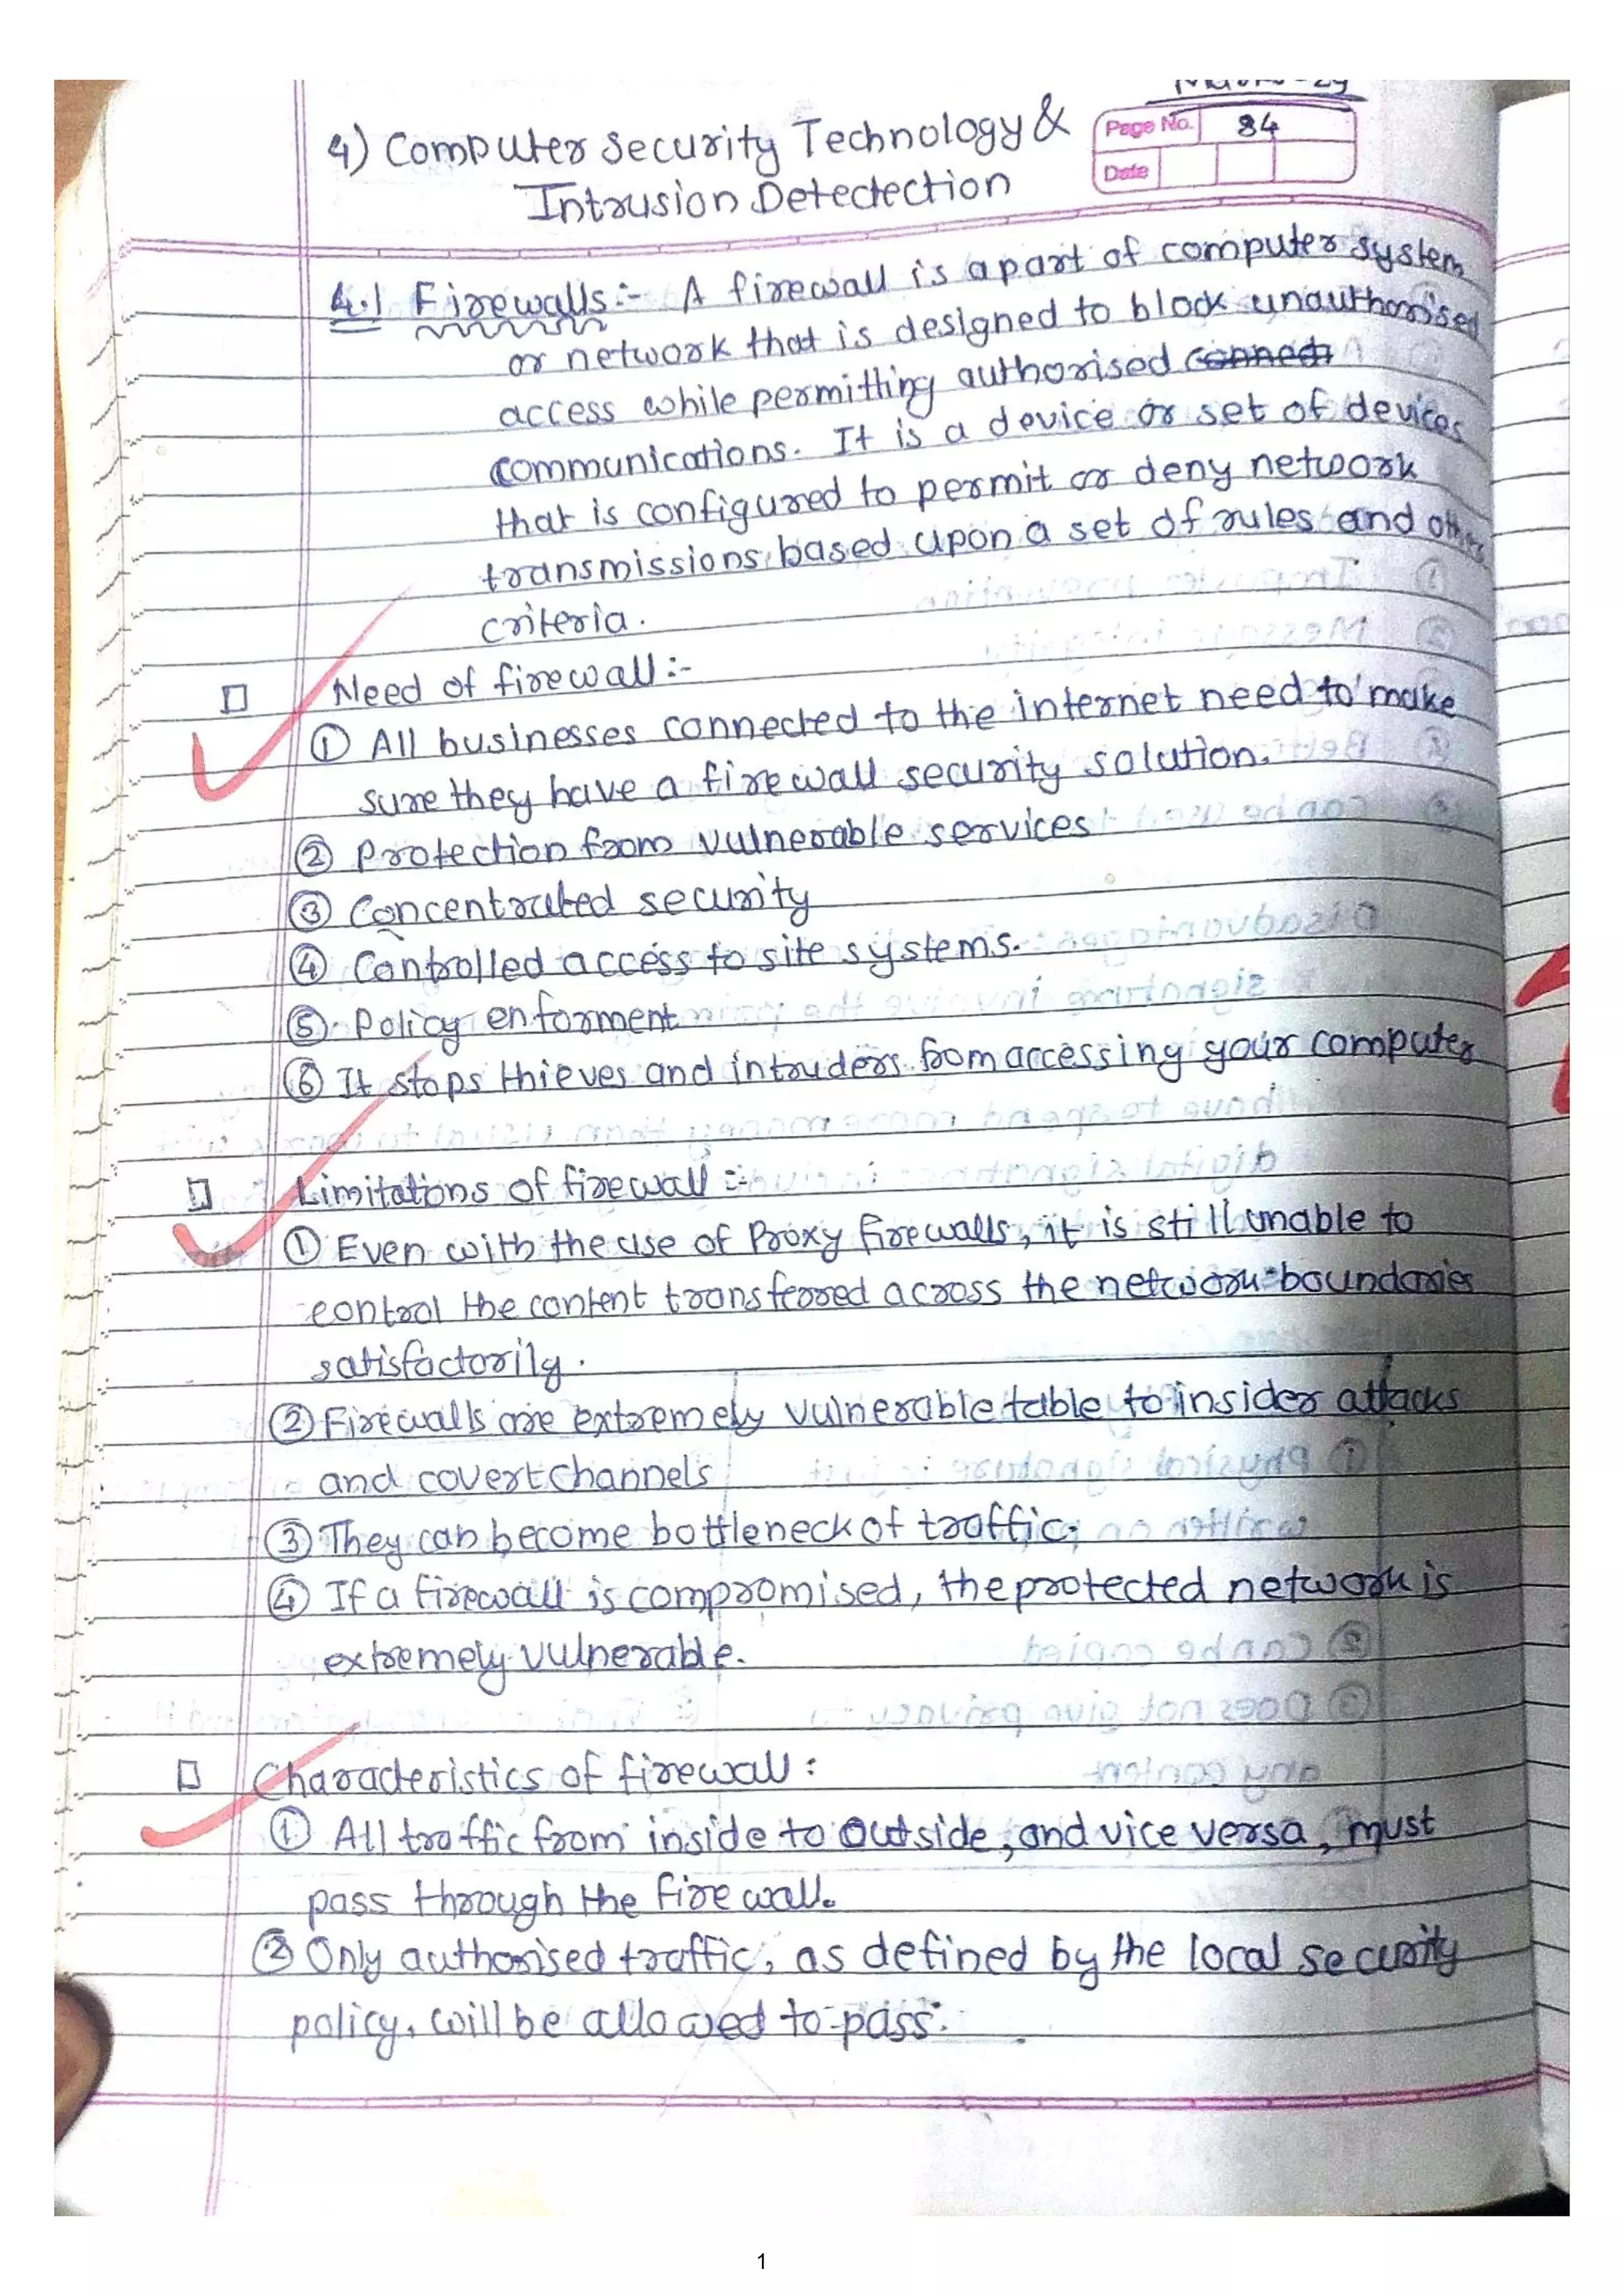 Page No. 84
Date
4) Computer Security Technology &
Intrusion Detectection
4.1 Firewalls:- A firewall is a part of computer system
or network that is designed to block unauthorised
access while permitting authorised connect
communications. It is a device or set of devices
that is configured to permit or deny network
transmissions based upon a set of rules and other
criteria.
Need of firewall:-
① All businesses connected to the internet need to make
sure they have a firewall security solution.
② Protection from vulnerable services
③ Concentrated security
④ Controlled access to site systems.
⑤ Policy enforment
⑥ It stops thieves and intruders from accessing your computer
Limitations of firewall :-
① Even with the use of Proxy firewalls, it is still unable to
control the content transferred across the network boundaries
satisfactorily.
② Firewalls are extremely vulnerable table to insider attacks
and covert channels
③ They can become bottleneck of traffic.
④ If a firewall is compromised, the protected network is
extremely vulnerable.
Characteristics of firewall :
① All traffic from inside to outside, and vice versa, must
pass through the firewall.
② Only authorised traffic, as defined by the local security
policy, will be allowed to pass.
1